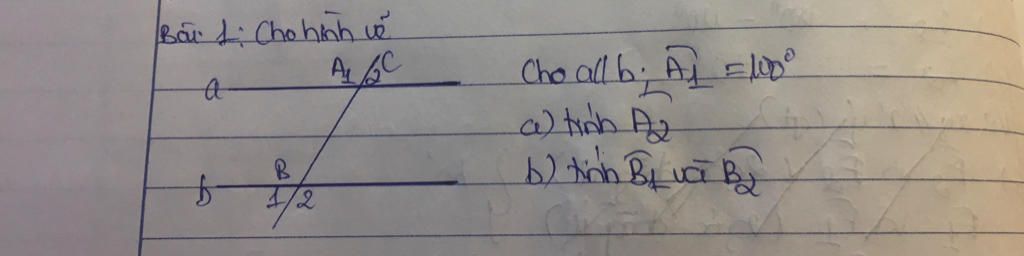 Bài 1: Cho hình vẽ
A 1 2 C
a
Cho a // b; A1 = 100°
a) tính A2
B
b
1 2
b) tính B1 và B2